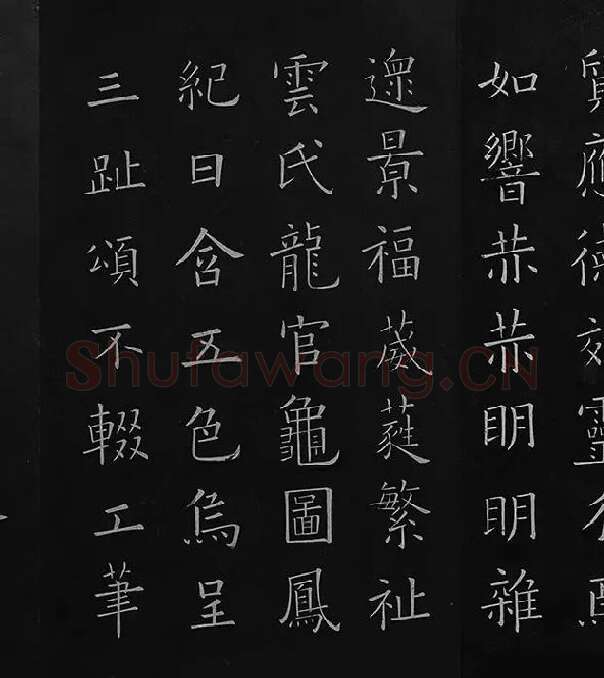 質應德靈
如響赫赫明明雜
遝景福葳蕤繁祉
雲氏龍官龜圖鳳
紀日含五色烏呈
三趾頌不輟工筆
Shufawang.CN